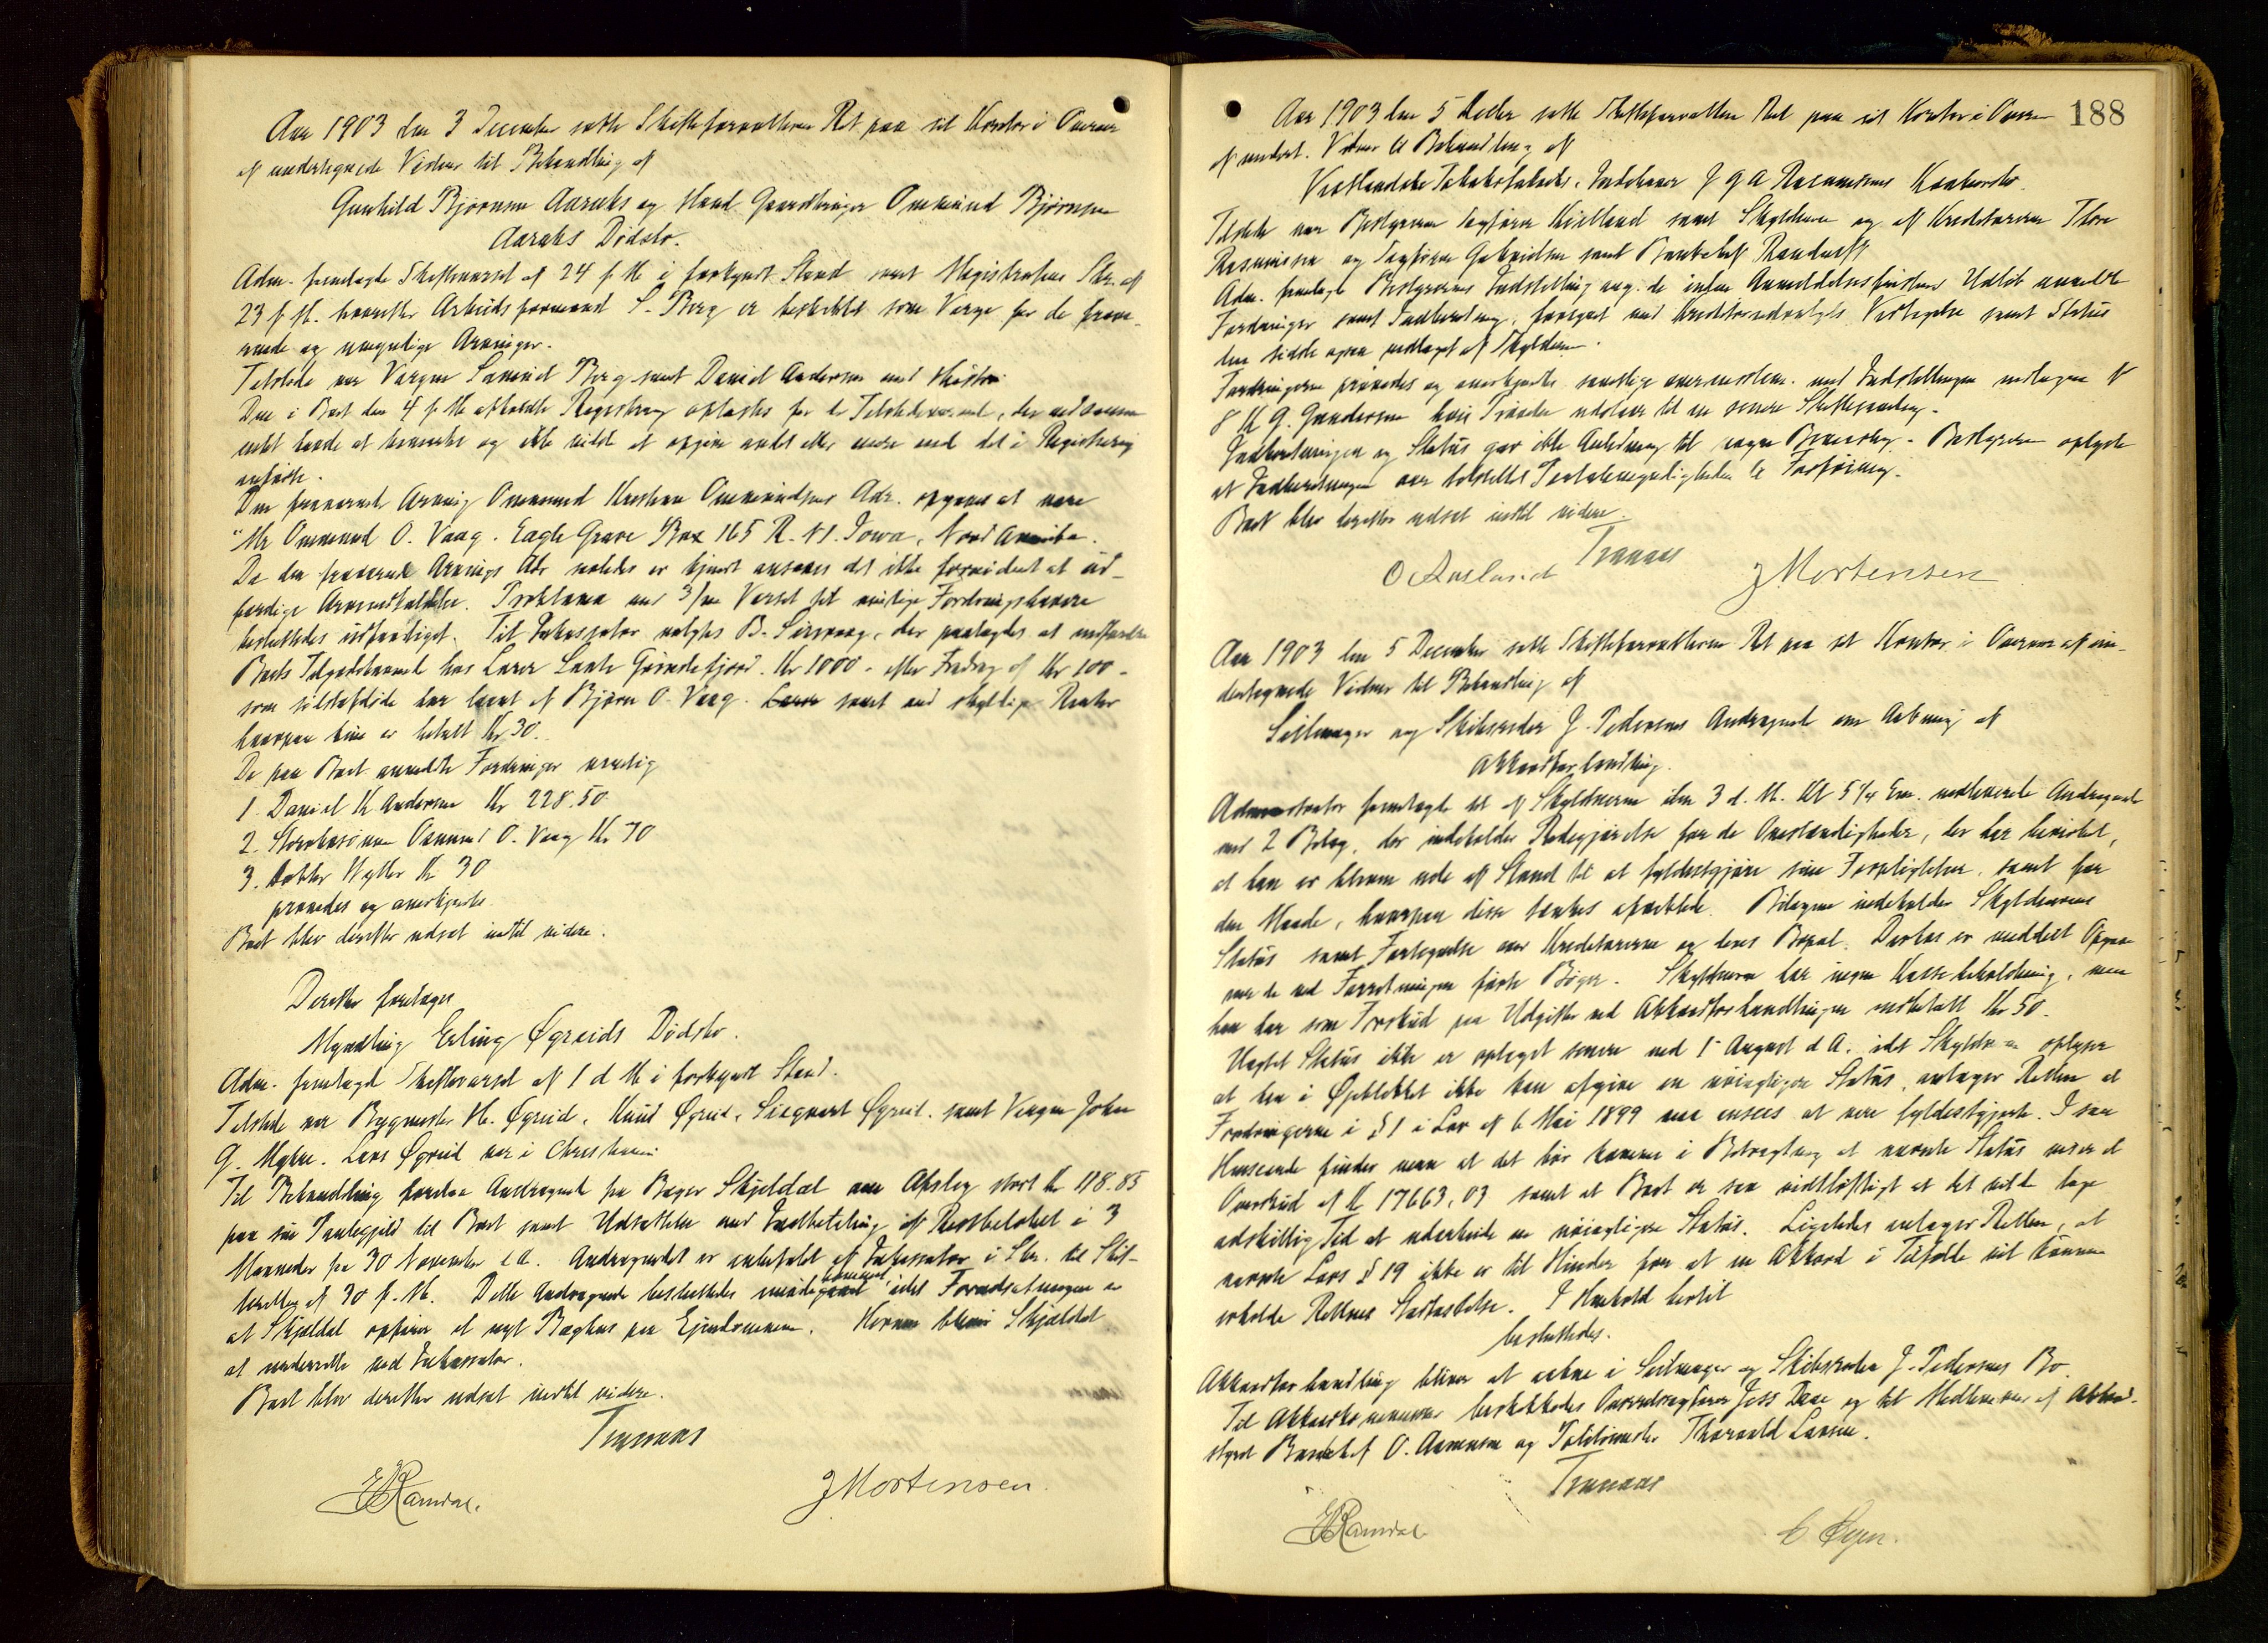 Aar 1903 den 3 December satte Skifteforvalteren Ret paa sit Kontor i Overvær
af undertegnede Vidner til Behandling af
Gunhild Bjørnsen Aaraks og Mand Gaardbruger Ommund Bjørnsen
Aaraks Dødsbo.
Adm. fremlagde Skiftevarsel af 24 f. M. i forkyndt Stand samt Magistratens Skr. af
23 f. M. hvorefter Arbeidsformand S. Berg er beskikket som Verge for de fravæ-
rende og umyndige Arvinger.
Tilstede var Vergen Samuel Berg samt Daniel Andersen med Hustru.
Den i Boet den 4 f. M. afholdte Registrering oplæstes for de Tilstedeværende, der ved samme
intet havde at bemærke og ikke vidste at opgive andet eller mere end det i Registrering
anførte.
Den fraværende Arving Ommund Kristian Ommundsens Adr. opgaves at være
"Mr Ommund O. Vaag. Eagle Grove Box 165 R. N 1. Iowa, Nord Amerika.
Da den fraværende Arvings Adr. saaledes er kjendt ansaaes det ikke fornødent at ud-
færdige Arveindkaldelse. Proklama med 3/m Varsel til mulige Fordringshavere
besluttedes udfærdiget. Til Inkassator valgtes B. Sirevaag, der paalagdes at indfordre
Boets Tilgodehavende hos Lærer Grimdefjord. Kr 1000 - efter Fradrag af Kr 100 -
som har laant af Bjørn O. Vaag. Lærer samt med skyldige Renter
hvorpaa kun er betalt Kr 30.
De paa Boet anmeldte Fordringer nemlig
1. Daniel K Andersen Kr 228.50
2. Ommund O. Vaag Kr. 70
3. Doktor Wyller Kr 30
prøvedes og anerkjendtes.
Boet blev derefter udsat indtil videre.
Derefter foretages
Myndling Erling Øgreids Dødsbo.
Adm. fremlagde Skiftevarsel af 1 d. M i forkyndt Stand.
Tilstede var Bygmester M. Øgreid, Knud Øgreid, Sigvart Øgreid samt Vergen John
G. Myhre. Lars Øgreid var i
Til Behandling forelaa Andragende fra Bager Skjeldal om Afslag stort Kr 118.85
paa sin Pantegjeld til Boet samt Udsættelse med Indbetaling af Restbeløbet i 3
Maaneder fra 30 November d A. Andragendet er anbefalet af Inkassator i Skr. til Skif-
teretten af 30 f. M. Dette Andragende besluttedes imødekommet idet Forudsætningen er
at Skjældal opfører et nyt Baghus paa Eiendommen. Herom bliver Skjældal
at underrette ved Inkassator.
Boet blev derefter udsat indtil videre.
Tranaas
E Ramdal.
J Mortensen.
188
Aar 1903 den 5 Decbr satte Skifteforvalteren Ret paa sit Kontor i Overvær
af undert. Vidner til Behandling af
Vestlandske Tobaksfabriks, Indehaver J G A Rasmussens Konkursbo.
Tilstede var Bestyreren Sagfører Kielland samt Skyldneren og af Kreditorerne Thore
Rasmussen og Sagfører Gabrielsen samt Bankchef
Adm. fremlagde Bestyrerens Indstilling ang. de inden Anmeldelsesfristens Udløb anmeldte
Fordringer samt Indberetning, forsynet med Kreditorudvalgets Vedtagelse samt Status
den sidste ogsaa vedtaget af Skyldneren.
Fordringerne prøvedes og anerkjendtes samtlige overensstem. med Indstillingen undtagen af
J M G. Gundersen hvis Prøvelse udstaar til en senere Skiftesamling.
Indberetningen og Status gav ikke Anledning til nogen Bemærkning. Bestyreren oplyste
at Indberetningen var tilstillet Paatalemyndigheden til Forføining.
Boet blev derefter udsat indtil videre.
Tranaas
O Aasland
J Mortensen
Aar 1903 den 5 December satte Skifteforvalteren Ret paa sit Kontor i Overvær af un-
dertegnede Vidner til Behandling af
Seilmager og Skibsreder J. Pedersens Andragende om Aabning af
Akkordforhandling.
Administrator fremlagde et af Skyldneren den 3 d. M. Kl 5 1/4 Em. indleveret Andragende
med 2 Bilag, der indeholder Redegjørelse for de Omstændigheder, der har bevirket,
at han er bleven ude af Stand til at fyldestgjøre sine Forpligtelser, samt for
den Maade, hvorpaa disse tænkes afviklede. Bilagene indeholder Skyldnerens
Status samt Fortegnelse over Kreditorerne og deres Bopæl. Derhos er meddelt Opgave
over de ved Forretningen førte Bøger. Skyldneren har ingen Kassebeholdning, men
han har som Forskud paa Udgifter ved Akkordforhandlingen indbetalt Kr 50.
Uagtet Status ikke er optaget senere end 1 August d A. idet Skyldneren oplyser
at han i Øieblikket ikke kan afgive en nøiagtigere Status, antager Retten at
Fordringerne i § 1 i Lov af 6 Mai 1899 maa ansees at være fyldestgjorte. I saa
Henseende finder man at det bør komme i Betragtning at nævnte Status viser et
Overskud af Kr 17663,03 samt at Boet er saa vidtløftigt at det vilde tage
adskillig Tid at udarbeide en nøiagtigere Status. Ligeledes antager Retten, at
nævnte Lovs § 19 ikke er til Hinder for at en Akkord i Tilfælde vil kunne
erholde Rettens Stadfæstelse. I Henhold hertil
besluttedes.
Akkordforhandling bliver at aabne i Seilmager og Skibsreder J. Pedersens Bo.
Til Akkordkommissær beskikkedes Overretssagfører Jess Daae og til Medlemmer af Akkord-
styret Bankchef O. Aanensen og Politimester Thorvald Larsen.
Tranaas
E Ramdal
C Øyen.